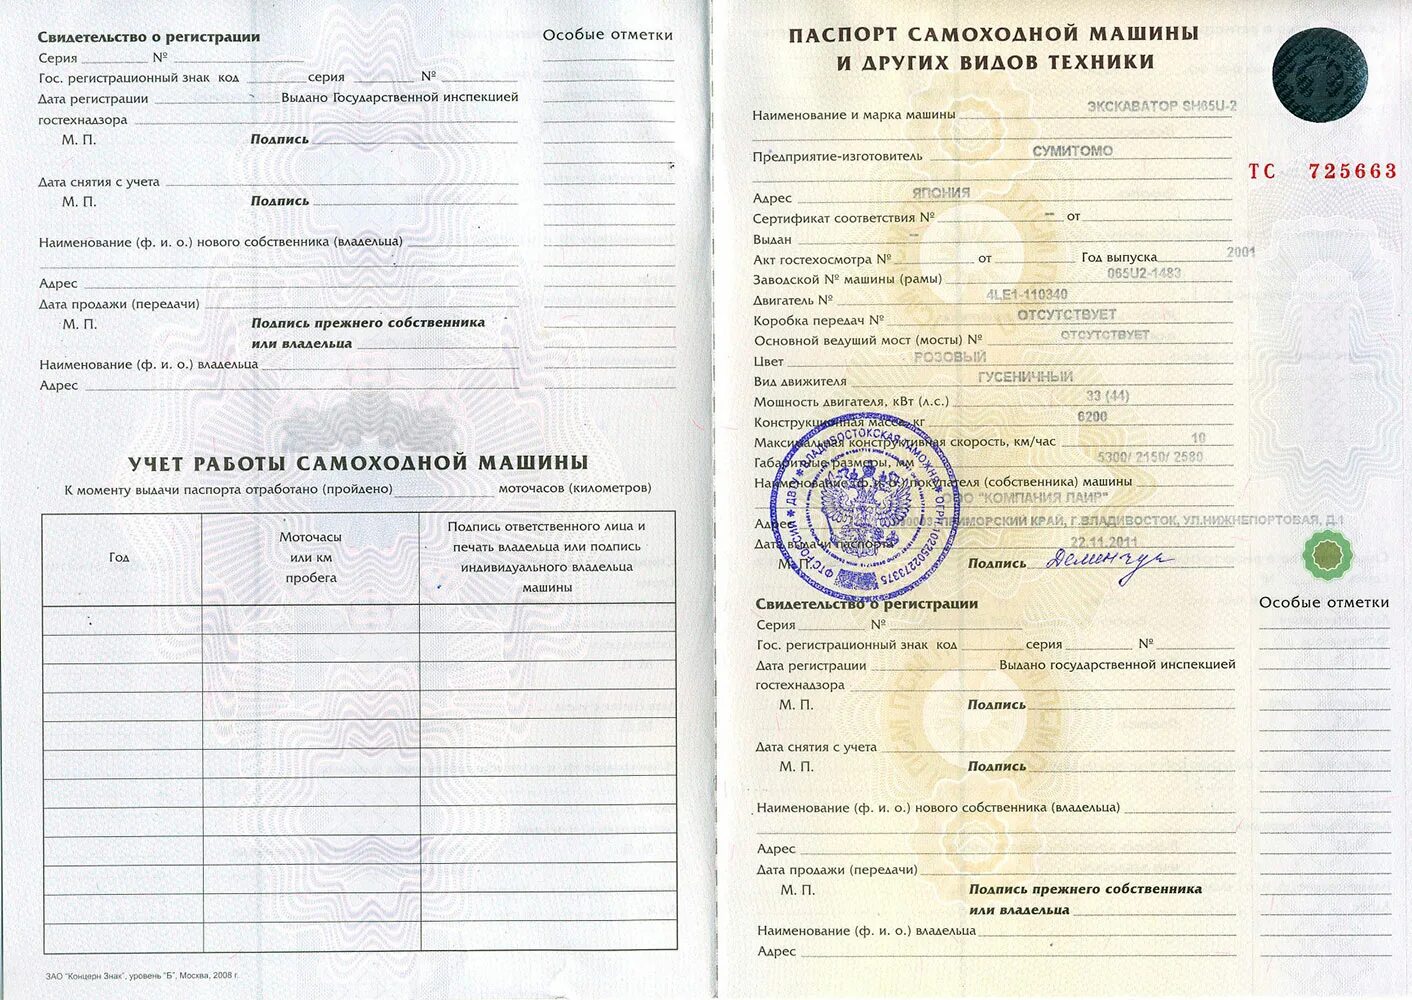 Свидетельство о регистрации
Серия № 
Гос. регистрационный знак код серия №
Дата регистрации Выдано Государственной инспекцией
гостехнадзора
М. П. Подпись
Дата снятия с учета
М. П. Подпись
Наименование (ф. и. о.) нового собственника (владельца)
Адрес
Дата продажи (передачи)
М. П. Подпись прежнего собственника
или владельца
Наименование (ф. и. о.) владельца
Адрес
Особые отметки
УЧЕТ РАБОТЫ САМОХОДНОЙ МАШИНЫ
К моменту выдачи паспорта отработано (пройдено) моточасов (километров)
Год
Моточасы
или км
пробега
Подпись ответственного лица и
печать владельца или подпись
индивидуального владельца
машины
ЗАО "Концерн Знак", уровень "Б", Москва, 2008 г.
ПАСПОРТ САМОХОДНОЙ МАШИНЫ
И ДРУГИХ ВИДОВ ТЕХНИКИ
ТС 725663
Наименование и марка машины ЭКСКАВАТОР SH65U-2
Предприятие-изготовитель СУМИТОМО
Адрес ЯПОНИЯ
Сертификат соответствия № -- от
Выдан --
Акт гостехосмотра № от Год выпуска 2001
Заводской № машины (рамы) 065U2-1483
Двигатель № 4LE1-110340
Коробка передач № ОТСУТСТВУЕТ
Основной ведущий мост (мосты) № ОТСУТСТВУЕТ
Цвет РОЗОВЫЙ
Вид движителя ГУСЕНИЧНЫЙ
Мощность двигателя, кВт (л.с.) 33 (44)
Конструкционная масса, кг 6200
Максимальная конструктивная скорость, км/час 10
Габаритные размеры, мм 5300/ 2150/ 2580
Наименование (ф. и. о.) покупателя (собственника) машины
ООО "КОМПАНИЯ ЛАИР"
Адрес ПРИМОРСКИЙ КРАЙ, Г.ВЛАДИВОСТОК, УЛ.НИЖНЕПОРТОВАЯ, Д.1
Дата выдачи паспорта 22.11.2011
М. П. Подпись Деменчук
ФТС РОССИИ * ДВТУ * ВЛАДИВОСТОКСКАЯ ТАМОЖНЯ * ОГРН 1022502273375
Свидетельство о регистрации
Серия №
Гос. регистрационный знак код серия №
Дата регистрации Выдано государственной инспекцией
гостехнадзора
М. П. Подпись
Дата снятия с учета
М. П. Подпись
Наименование (ф. и. о.) нового собственника (владельца)
Адрес
Дата продажи (передачи)
М. П. Подпись прежнего собственника
или владельца
Наименование (ф. и. о.) владельца
Адрес
Особые отметки